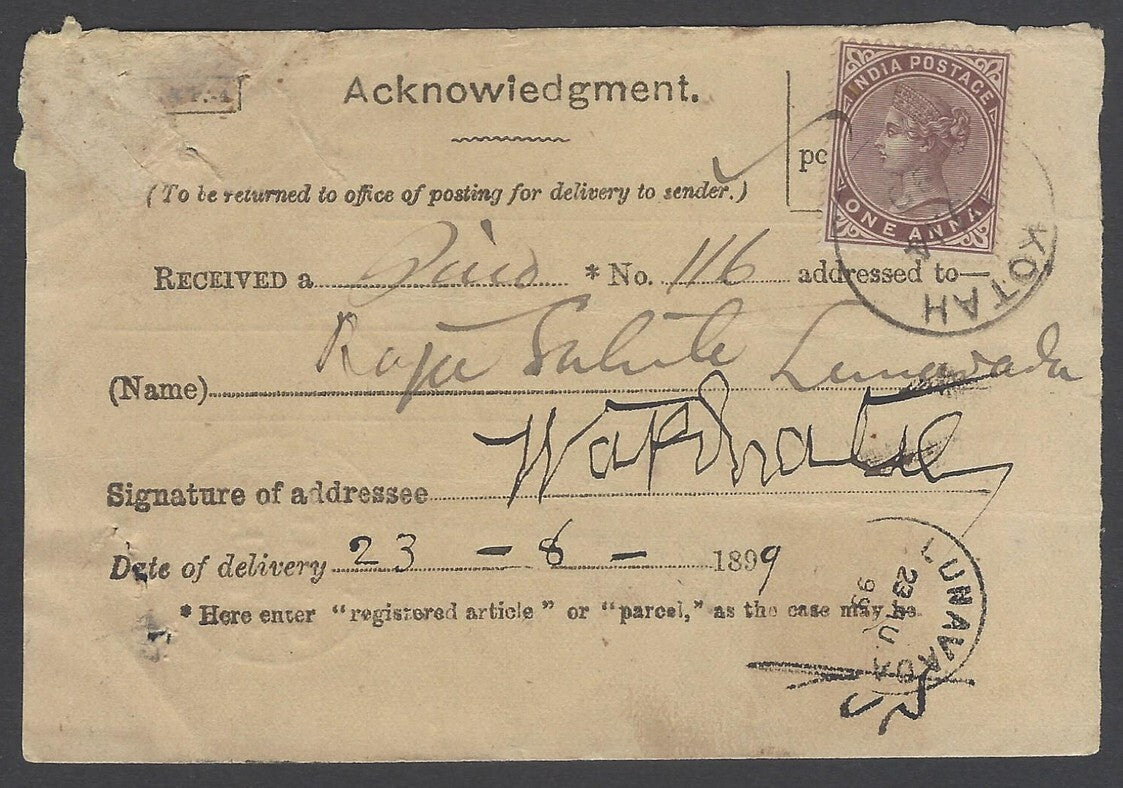 Acknowledgment.
INDIA POSTAGE
ONE ANNA
(To be returned to office of posting for delivery to sender.)
RECEIVED a * No. 116 addressed to—
KOTAH
(Name) Raja Lunavada
Signature of addressee
Date of delivery 23 - 8 - 1899
* Here enter "registered article" or "parcel," as the case may be.
LUNAVADA
23 AU.
99